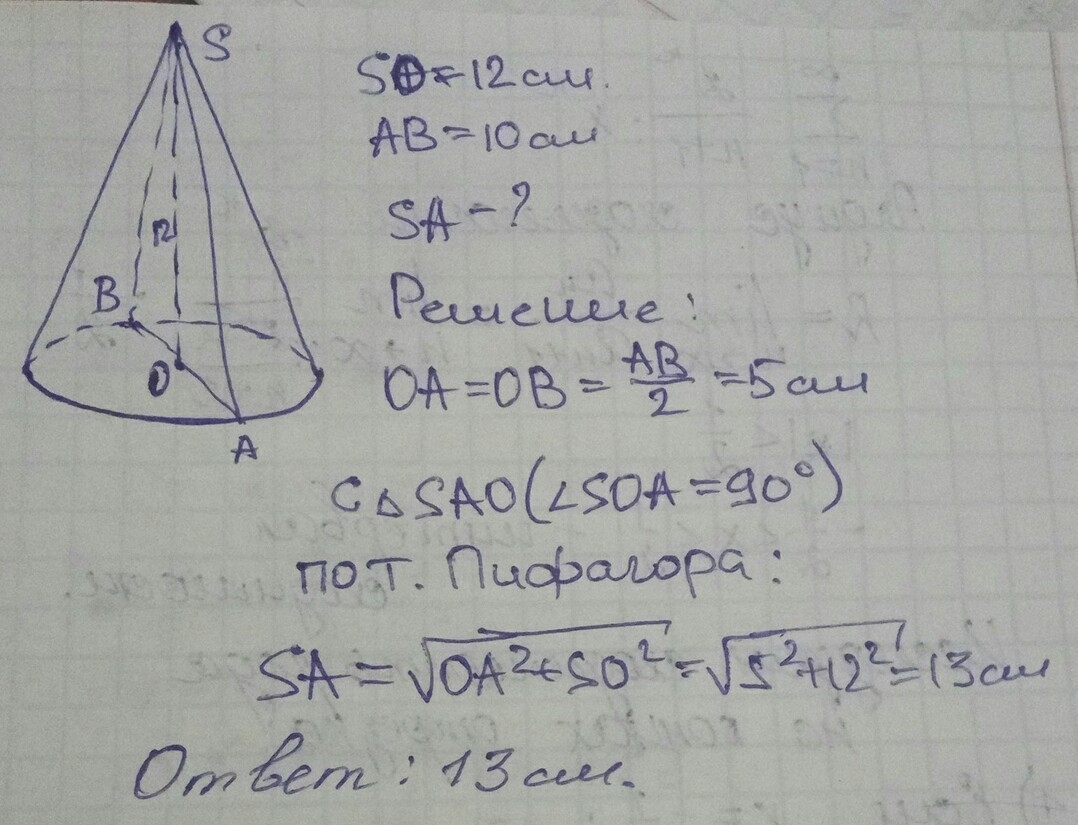 S
SO=12 см.
AB=10 см
SA-?
12
B
Решение:
O
OA=OB=AB/2=5 см
A
С △ SAO (∠SOA=90°)
по т. Пифагора:
SA=√OA²+SO²=√5²+12²=13 см
Ответ: 13 см.